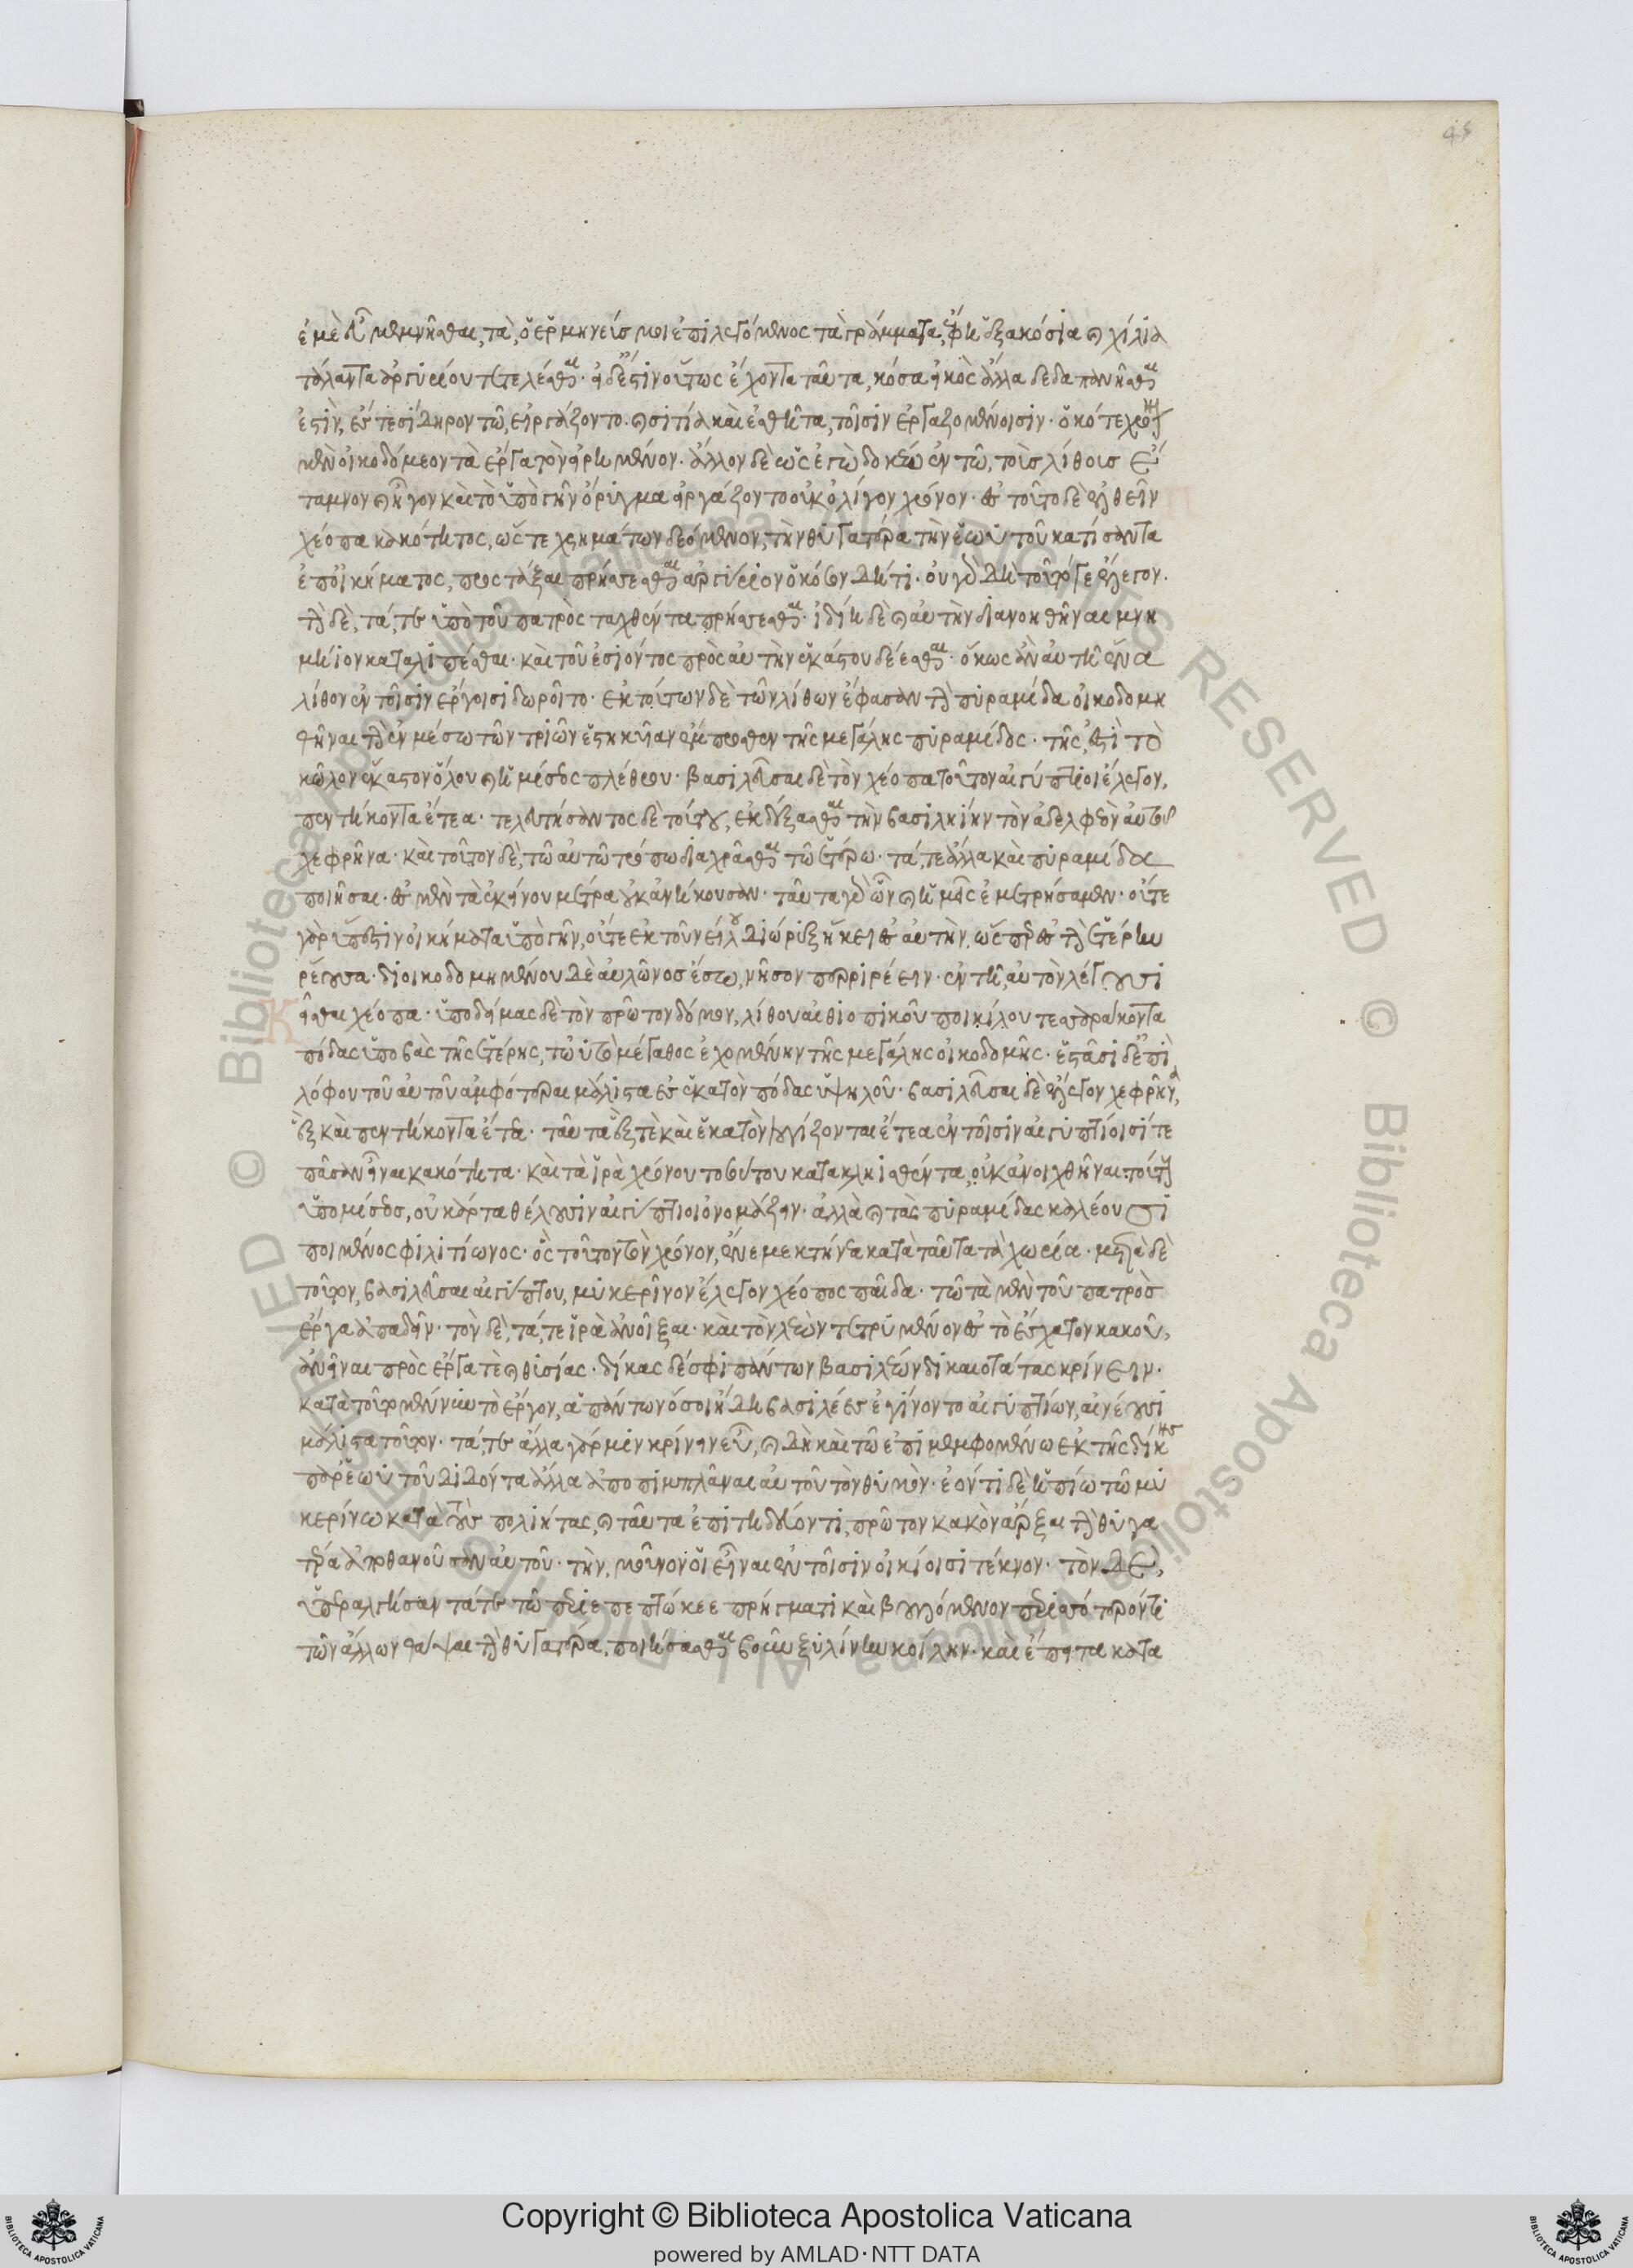 ἐμὲ εὖ μεμνῆσθαι, τὰ, ὁ ἑρμηνεύς μοι ἐπιλεγόμενος τὰ γράμματα, ἔφη ἑξακόσια καὶ χίλια
τάλαντα ἀργυρίου τετελέσθαι· εἰ δ' ἔστιν οὕτως ἔχοντα ταῦτα, κόσα εἰκὸς ἄλλα δεδαπανῆσθαι
ἐστὶν, ἔς τε σίδηρον τῶ, εἰργάζοντο· καὶ σιτία καὶ ἐσθῆτα, τοῖσιν ἐργαζομένοισιν· ὁκότε χρόνον
μὲν οἰκοδόμεον τὰ ἔργα τὸν εἰρημένον· ἄλλον δὲ ὡς ἐγὼ δοκέω ἐν τῶ, τοὺς λίθους ἔ
ταμνον καὶ ἦγον καὶ τὸ ὑπὸ γῆν ὄρυγμα εἰργάζοντο οὐκ ὀλίγον χρόνον· ἐς τοῦτο δὲ ἐλθεῖν
χέοπα κακότητος, ὥστε χρημάτων δεόμενον, τὴν θυγατέρα τὴν ἑωυτοῦ κατίσαντα
ἐπ' οἰκήματος, προστάξαι πρήσσεσθαι ἀργύριον ὁκόσον δή τι· οὐ γὰρ δὴ τοῦτό γε ἔλεγον·
τὴν δὲ, τά, τε ὑπὸ τοῦ πατρὸς ταχθέντα πρήσσεσθαι· ἰδίη δὲ καὶ αὐτὴν διανοηθῆναι μνη
μήιον καταλιπέσθαι· καὶ τοῦ ἐσιόντος πρὸς αὐτὴν ἑκάστου δέεσθαι· ὅκως ἂν αὐτῆ ἕνα
λίθον ἐν τοῖσιν ἔργοισι δωροῖτο· ἐκ τούτων δὲ τῶν λίθων ἔφασαν τὴν πυραμίδα οἰκοδομη
θῆναι τὴν ἐν μέσω τῶν τριῶν ἑστηκυῖαν ἔμπροσθεν τῆς μεγάλης πυραμίδος· τῆς, ἐστὶ τὸ
κῶλον ἕκαστον ὅλου καὶ ἡμίσεος πλέθρου· βασιλεῦσαι δὲ τὸν χέοπα τοῦτον αἰγύπτιοι ἔλεγον,
πεντήκοντα ἔτεα· τελευτήσαντος δὲ τούτου, ἐκδέξασθαι τὴν βασιληίην τὸν ἀδελφεὸν αὐτοῦ
χεφρῆνα· καὶ τοῦτον δὲ, τῶ αὐτῶ τρόπω διαχρᾶσθαι τῶ ἑτέρω· τά, τε ἄλλα καὶ πυραμίδα
ποιῆσαι· ἐς μὲν τὰ ἐκείνου μέτρα οὐκ ἀνήκουσαν· ταῦτα γὰρ ὦν καὶ ἡμεῖς ἐμετρήσαμεν· οὔτε
γὰρ ὕπεστιν οἰκήματα ὑπὸ γῆν, οὔτε ἐκ τοῦ νείλου διώρυξ ἥκει ἐς αὐτὴν, ὥσπερ ἐς τὴν ἑτέρην
ῥέουσα· δι' οἰκοδομημένου δὲ αὐλῶνος ἔσω, νῆσον περιρρέειν· ἐν τῆ, αὐτὸν λέγουσι
κεῖσθαι χέοπα· ὑποδείμας δὲ τὸν πρῶτον δόμον, λίθου αἰθιοπικοῦ ποικίλου τεσσεράκοντα
πόδας ὑποβὰς τῆς ἑτέρης, τὠυτὸ μέγαθος ἐχομένην τῆς μεγάλης οἰκοδομῆς· ἑστᾶσι δὲ ἐπὶ
λόφου τοῦ αὐτοῦ ἀμφότεραι μάλιστα ἐς ἑκατὸν πόδας ὑψηλοῦ· βασιλεῦσαι δὲ ἔλεγον χεφρῆνα,
ἓξ καὶ πεντήκοντα ἔτεα· ταῦτα ἕξ τε καὶ ἑκατὸν λογίζονται ἔτεα ἐν τοῖσιν αἰγυπτίοισί τε
πᾶσαν εἶναι κακότητα· καὶ τὰ ἱρὰ χρόνου τοσούτου κατακληισθέντα, οὐκ ἀνοιχθῆναι· τούτους
ὑπὸ μίσεος, οὐ κάρτα θέλουσιν αἰγύπτιοι ὀνομάζειν· ἀλλὰ καὶ τὰς πυραμίδας καλέουσι
ποιμένος φιλιτίωνος· ὃς τοῦτον τὸν χρόνον, ἔνεμε κτήνεα κατὰ ταῦτα τὰ χωρία· μετὰ δὲ
τοῦτον, βασιλεῦσαι αἰγύπτου, μυκερῖνον ἔλεγον χέοπος παῖδα· τῶ τὰ μὲν τοῦ πατρὸς
ἔργα ἀπαδεῖν· τὸν δὲ, τά, τε ἱρὰ ἀνοῖξαι· καὶ τὸν λεὼν τετρυμένον ἐς τὸ ἔσχατον κακοῦ,
ἀνεῖναι πρὸς ἔργα τὲ καὶ θυσίας· δίκας δέ σφι πάντων βασιλέων δικαιοτάτας κρίνειν·
κατὰ τοῦτο μέν νυν τὸ ἔργον, ἁπάντων ὅσοι ἤδη βασιλέες ἐγίνοντο αἰγυπτίων, αἰνέουσι
μάλιστα τοῦτον· τά, τε ἄλλα γάρ μιν κρίνειν εὖ, καὶ δὴ καὶ τῶ ἐπιμεμφομένω ἐκ τῆς δίκης
παρ' ἑωυτοῦ διδόντα ἄλλα ἀποπιμπλάναι αὐτοῦ τὸν θυμόν· ἐόντι δὲ ἠπίω τῶ μυ
κερίνω κατὰ τοὺς πολιήτας, καὶ ταῦτα ἐπιτηδεύοντι, πρῶτον κακὸν ἄρξαι τὴν θυγα
τέρα ἀποθανοῦσαν αὐτοῦ· τὴν, μοῦνον οἱ εἶναι ἐν τοῖσιν οἰκίοισι τέκνον· τὸν δὲ,
ὑπεραλγήσαντά τε τῶ περιεπεπτώκεε πρήγματι καὶ βουλόμενον περισσότερόν τι
τῶν ἄλλων θάψαι τὴν θυγατέρα, ποιήσασθαι βοῦν ξυλίνην κοίλην· καὶ ἔπειτα κατα